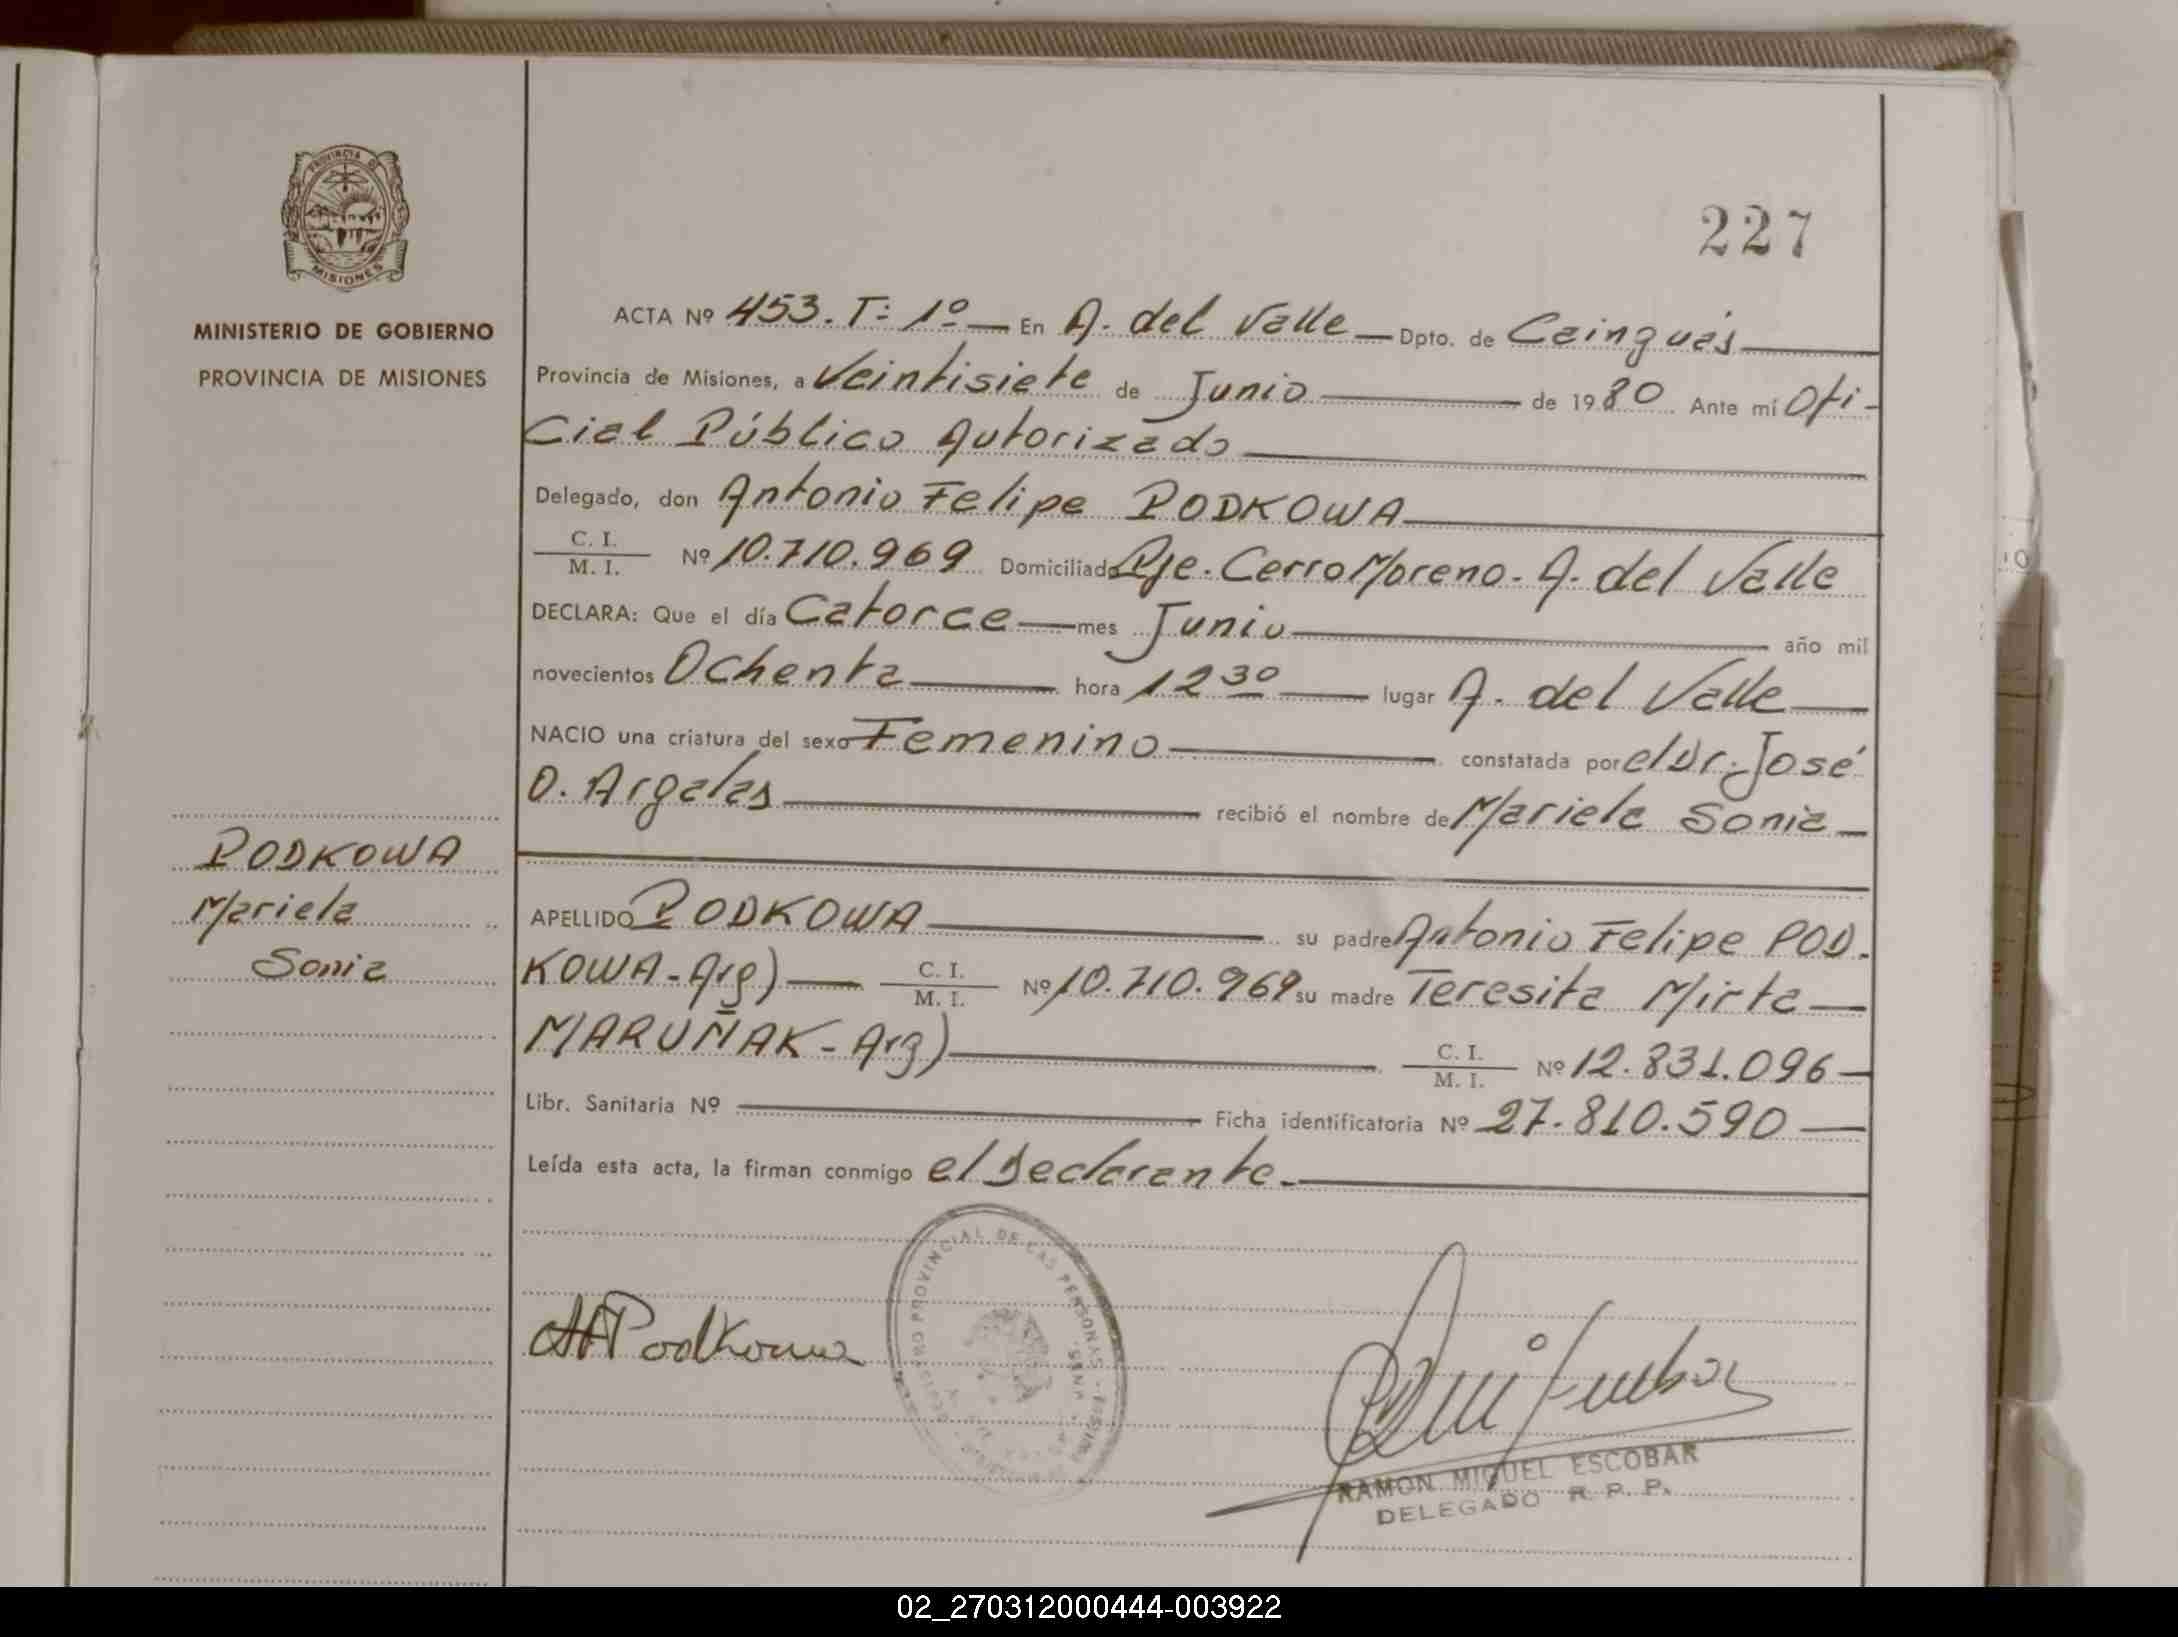 PROVINCIA DE
MISIONES
MINISTERIO DE GOBIERNO
PROVINCIA DE MISIONES
227
ACTA Nº 453. T: 1º — En A. del Valle — Dpto. de Cainguás
Provincia de Misiones, a Veintisiete de Junio de 1980 Ante mí Ofi-
cial Público Autorizado
Delegado, don Antonio Felipe PODKOWA
C. I.
M. I. Nº 10.710.969 Domiciliado Pje. Cerro Moreno. A. del Valle
DECLARA: Que el día Catorce mes Junio año mil
novecientos Ochenta hora 12 30 lugar A. del Valle
NACIO una criatura del sexo Femenino constatada por el Dr. José
O. Argelas recibió el nombre de Mariela Sonia
PODKOWA
Mariela
Sonia
APELLIDO PODKOWA su padre Antonio Felipe POD-
KOWA-Arg) C. I.
M. I. Nº 10.710.969 su madre Teresita Mirta
MARUÑAK-Arg) C. I.
M. I. Nº 12.831.096
Libr. Sanitaria Nº Ficha identificatoria Nº 27.810.590
Leída esta acta, la firman conmigo el Declarante.
REGISTRO PROVINCIAL DE LAS PERSONAS
AFPodkowa
RAMON MIGUEL ESCOBAR
DELEGADO R. P. P.
02_270312000444-003922